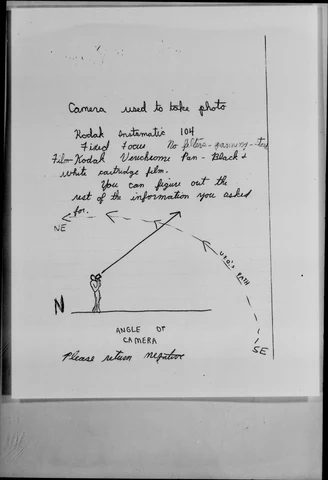 Camera used to take photo
Kodak Instamatic 104
Fixed Focus No filters -
Film - Kodak Verichrome Pan - Black &
white cartridge film.
You can figure out the
rest of the information you asked
for.
NE
UFO'S PATH
N
SE
ANGLE OF
CAMERA
Please return negative